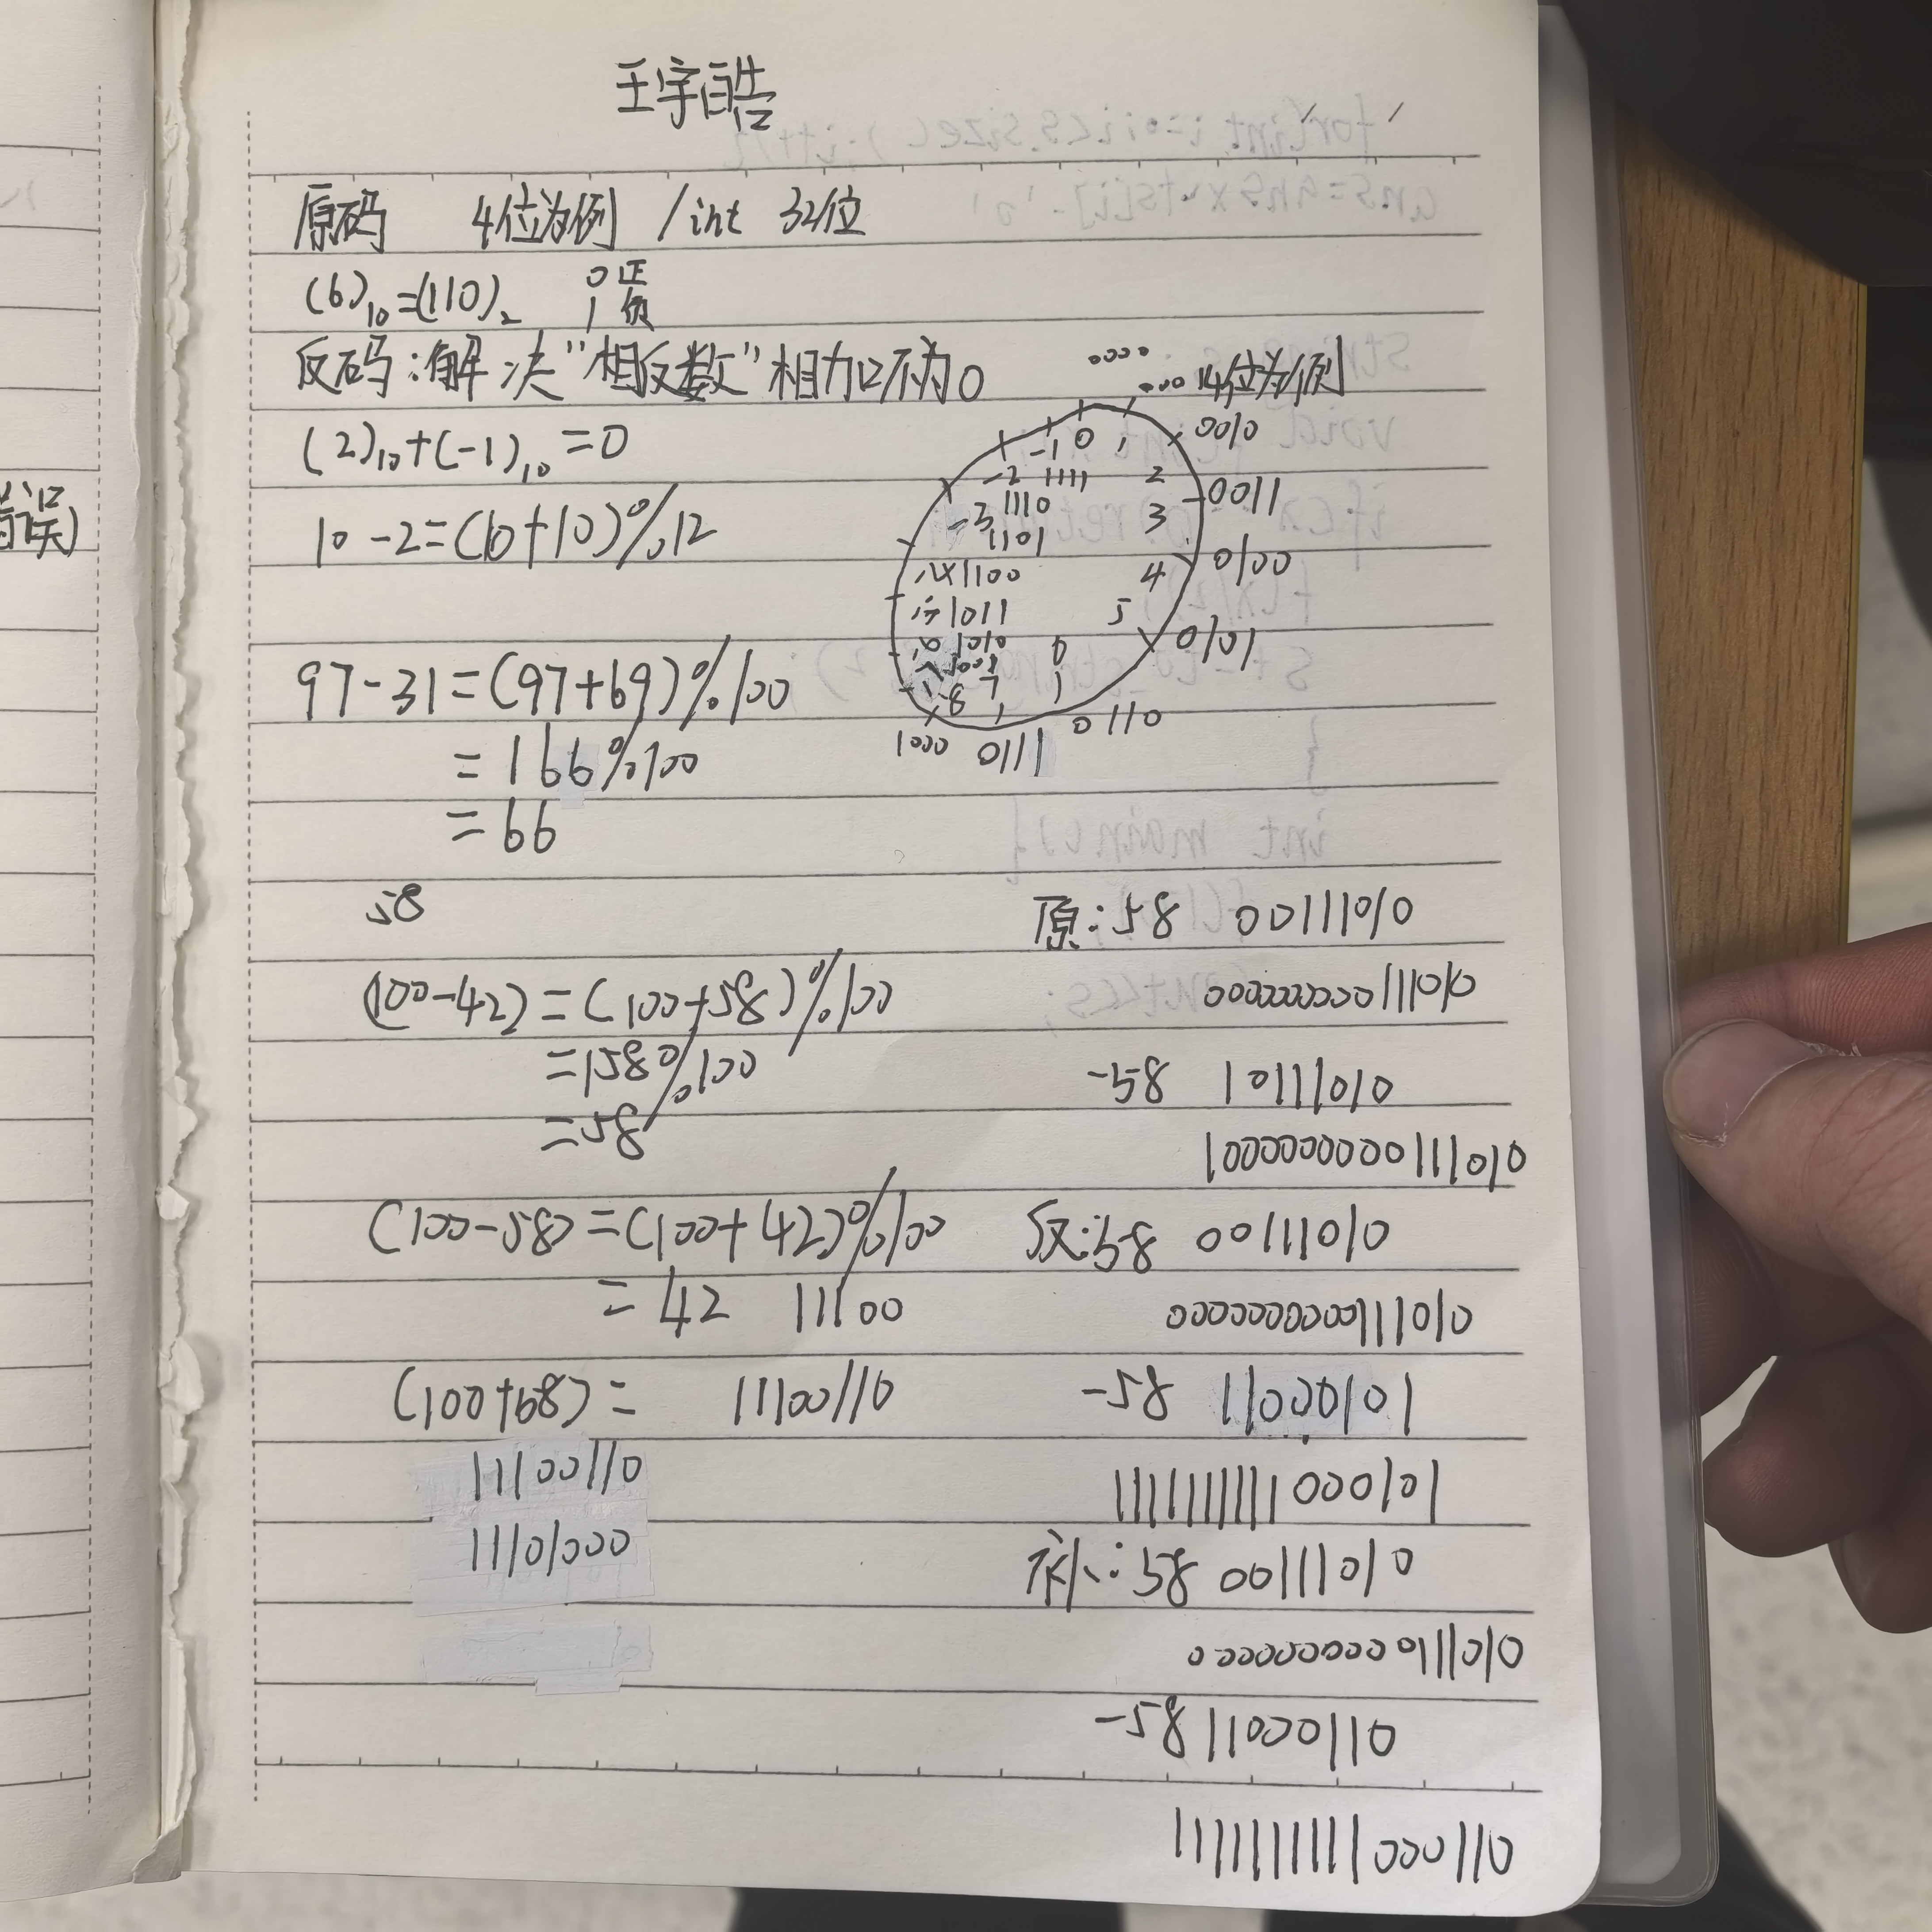 王宇皓
原码 4位为例 /int 32位
(6)₁₀=(110)₂ 0正
1负
反码:解决"相反数"相加不为0
0000
0001 4位为例
(2)₁₀+(-1)₁₀=0
10-2=(10+10)%12
-1 0 1 0010
-2 1111 2
-3 1110 3 0011
1101
1100 4 0100
1011 5
1010 6 0101
7 0110
1000 0111
97-31=(97+69)%100
=166%100
=66
58
(100-42)=(100+58)%100
=158%100
=58
(100-58)=(100+42)%100
=42 11100
(100+68)= 11100110
11100110
11101000
原:58 00111010
0000000000111010
-58 10111010
1000000000111010
反:58 00111010
0000000000111010
-58 11000101
1111111111000101
补:58 00111010
0000000000111010
-58 11000110
1111111111000110